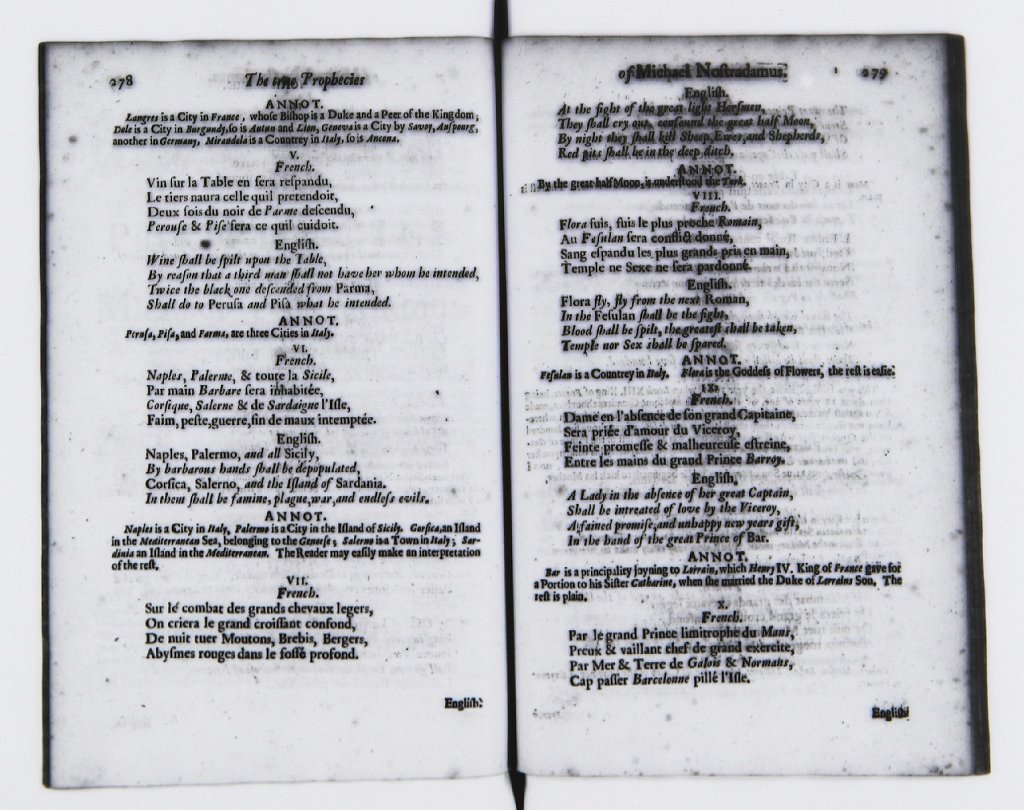 278 The true Prophecies
ANNOT.
Langres is a City in France, whose Bishop is a Duke and a Peer of the Kingdom;
Dole is a City in Burgundy, so is Autun and Lion, Geneva is a City by Savoy, Auspourg,
another in Germany, Mirandola is a Countrey in Italy, so is Ancona.
V.
French.
Vin ſur la Table en ſera reſpandu,
Le tiers naura celle quil pretendoit,
Deux fois du noir de Parme deſcendu,
Perouſe & Piſe ſera ce quil cuidoit.
Engliſh.
Wine ſhall be ſpilt upon the Table,
By reaſon that a third man ſhall not have her whom he intended,
Twice the black one deſcended from Parma,
Shall do to Peruſa and Piſa what he intended.
ANNOT.
Peruſa, Piſa, and Parma, are three Cities in Italy.
VI.
French.
Naples, Palerme, & toute la Sicile,
Par main Barbare ſera inhabitée,
Corſique, Salerne & de Sardaigne l'Iſle,
Faim, peſte, guerre, fin de maux intemptée.
Engliſh.
Naples, Palermo, and all Sicily,
By barbarous hands ſhall be depopulated,
Corſica, Salerno, and the Iſland of Sardania.
In them ſhall be famine, plague, war, and endleſs evils.
ANNOT.
Naples is a City in Italy, Palermo is a City in the Iſland of Sicily. Corſica, an Iſland
in the Mediterranean Sea, belonging to the Genoeſe; Salerno is a Town in Italy; Sar-
dinia an Iſland in the Mediterranean. The Reader may eaſily make an interpretation
of the reſt.
VII.
French.
Sur le combat des grands chevaux legers,
On criera le grand croiſſant confond,
De nuit tuer Moutons, Brebis, Bergers,
Abyſmes rouges dans le foſſé profond.
Engliſh.
of Michael Noſtradamus. 279
Engliſh.
At the fight of the great light Horſmen,
They ſhall cry out, confound the great half Moon,
By night they ſhall kill Sheep, Ewes, and Shepherds,
Red pits ſhall be in the deep ditch.
ANNOT.
By the great half Moon, is underſtood the Turk.
VIII.
French.
Flora fuis, fuis le plus proche Romain,
Au Feſulan ſera conflict donné,
Sang eſpandu les plus grands pris en main,
Temple ne Sexe ne ſera pardonné.
Engliſh.
Flora fly, fly from the next Roman,
In the Feſulan ſhall be the fight,
Blood ſhall be ſpilt, the greateſt ſhall be taken,
Temple nor Sex ſhall be ſpared.
ANNOT.
Feſulan is a Countrey in Italy. Flora is the Goddeſs of Flowers, the reſt is eaſie.
IX.
French.
Dame en l'abſence de ſon grand Capitaine,
Sera priée d'amour du Viceroy,
Feinte promeſſe & malheureuſe eſtreine,
Entre les mains du grand Prince Barroy.
Engliſh.
A Lady in the abſence of her great Captain,
Shall be intreated of love by the Viceroy,
A fained promiſe, and unhappy new years gift,
In the hand of the great Prince of Bar.
ANNOT.
Bar is a principality joyning to Lorrain, which Henry IV. King of France gave for
a Portion to his Siſter Catharine, when ſhe married the Duke of Lorrains Son, The
reſt is plain.
X.
French.
Par le grand Prince limitrophe du Mans,
Preux & vaillant chef de grand exercite,
Par Mer & Terre de Galois & Normans,
Cap paſſer Barcelonne pillé l'Iſle.
Engliſh